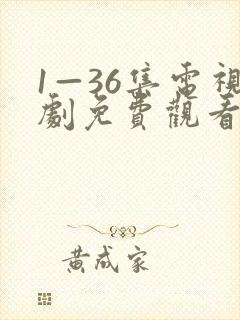 1—36集電視
劇免費觀看
黃成家